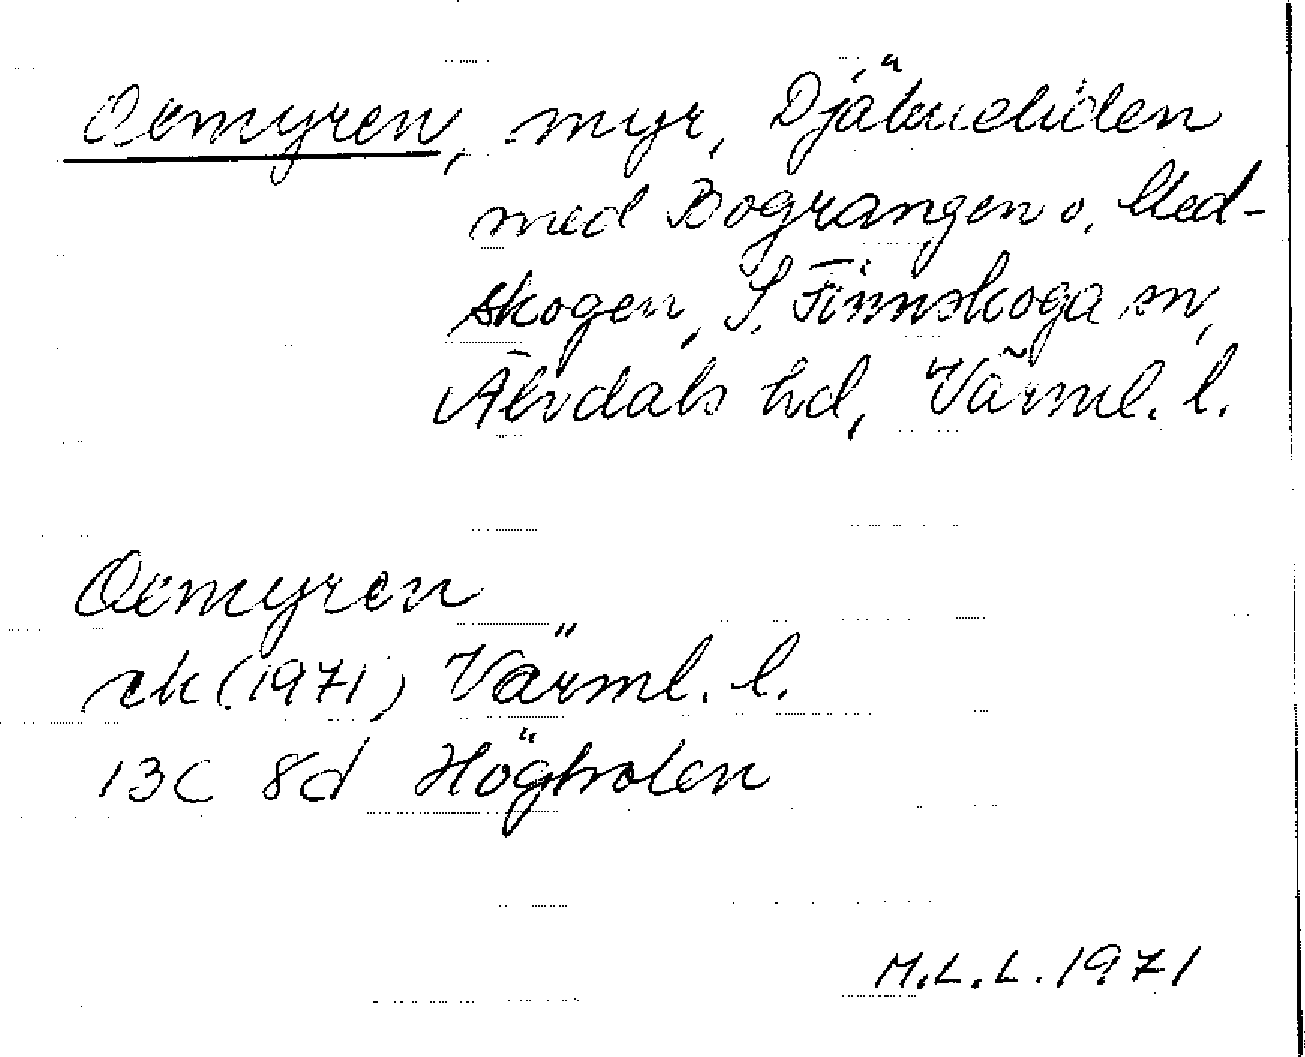 Ormyren, myr, Djäkneliden
med Bograngen o. Med-
skogen, S. Finnskoga sn,
Älvdals hd, Värml. l.
Ormyren
ek (1971) Värml. l.
13C 8d
M.L.L. 1971